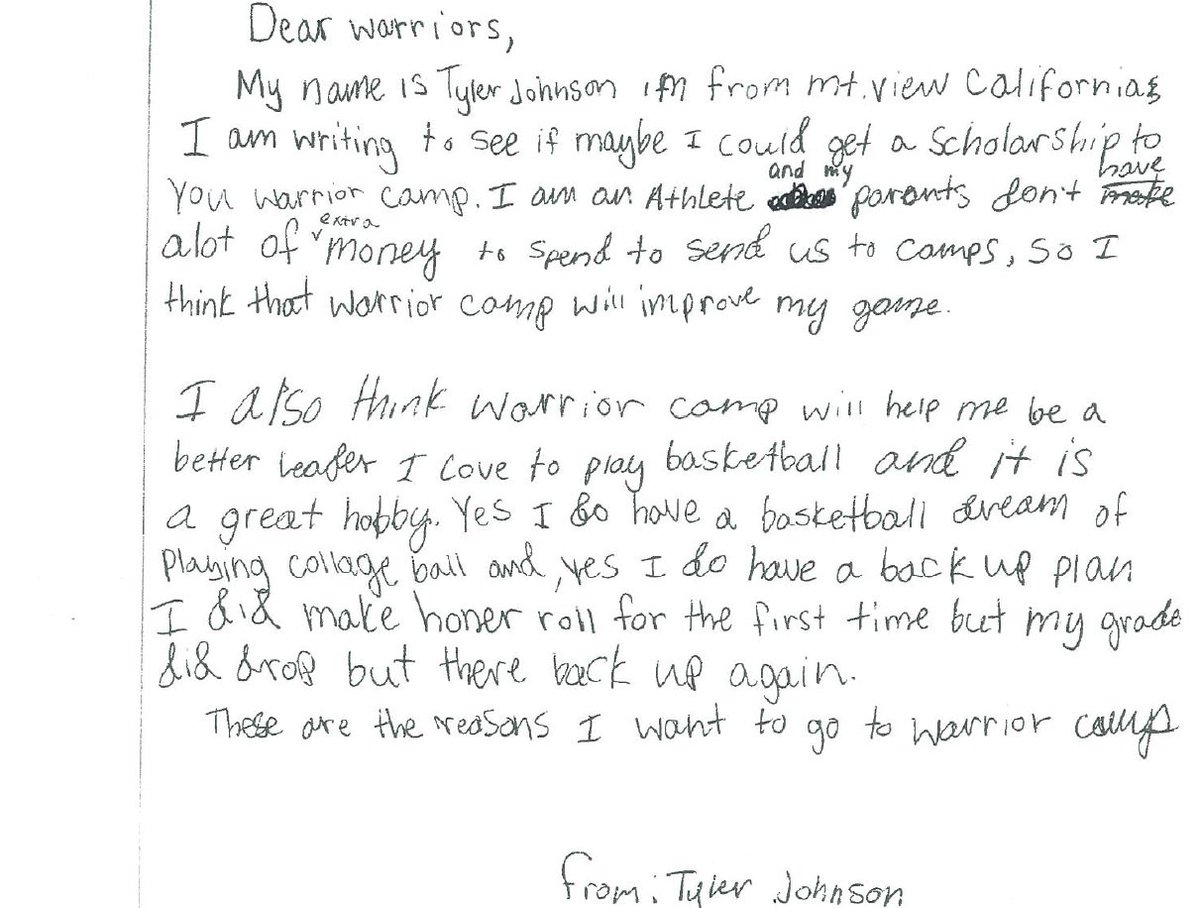 Dear warriors,
My name is Tyler Johnson im from mt.view California
I am writing to see if maybe I could get a Scholarship to
you warrior camp. I am an Athlete and my parents don't have
alot of extra money to spend to send us to camps, so I
think that warrior camp will improve my game.
I also think warrior camp will help me be a
better leader I love to play basketball and it is
a great hobby. Yes I do have a basketball dream of
playing collage ball and, yes I do have a back up plan
I did make honer roll for the first time but my grade
did drop but there back up again.
These are the reasons I want to go to warrior camp
from: Tyler Johnson